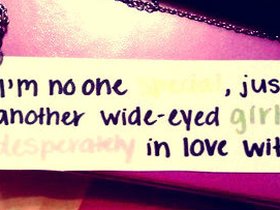 I'm no one special, jus
another wide-eyed girl
desperately in love wit